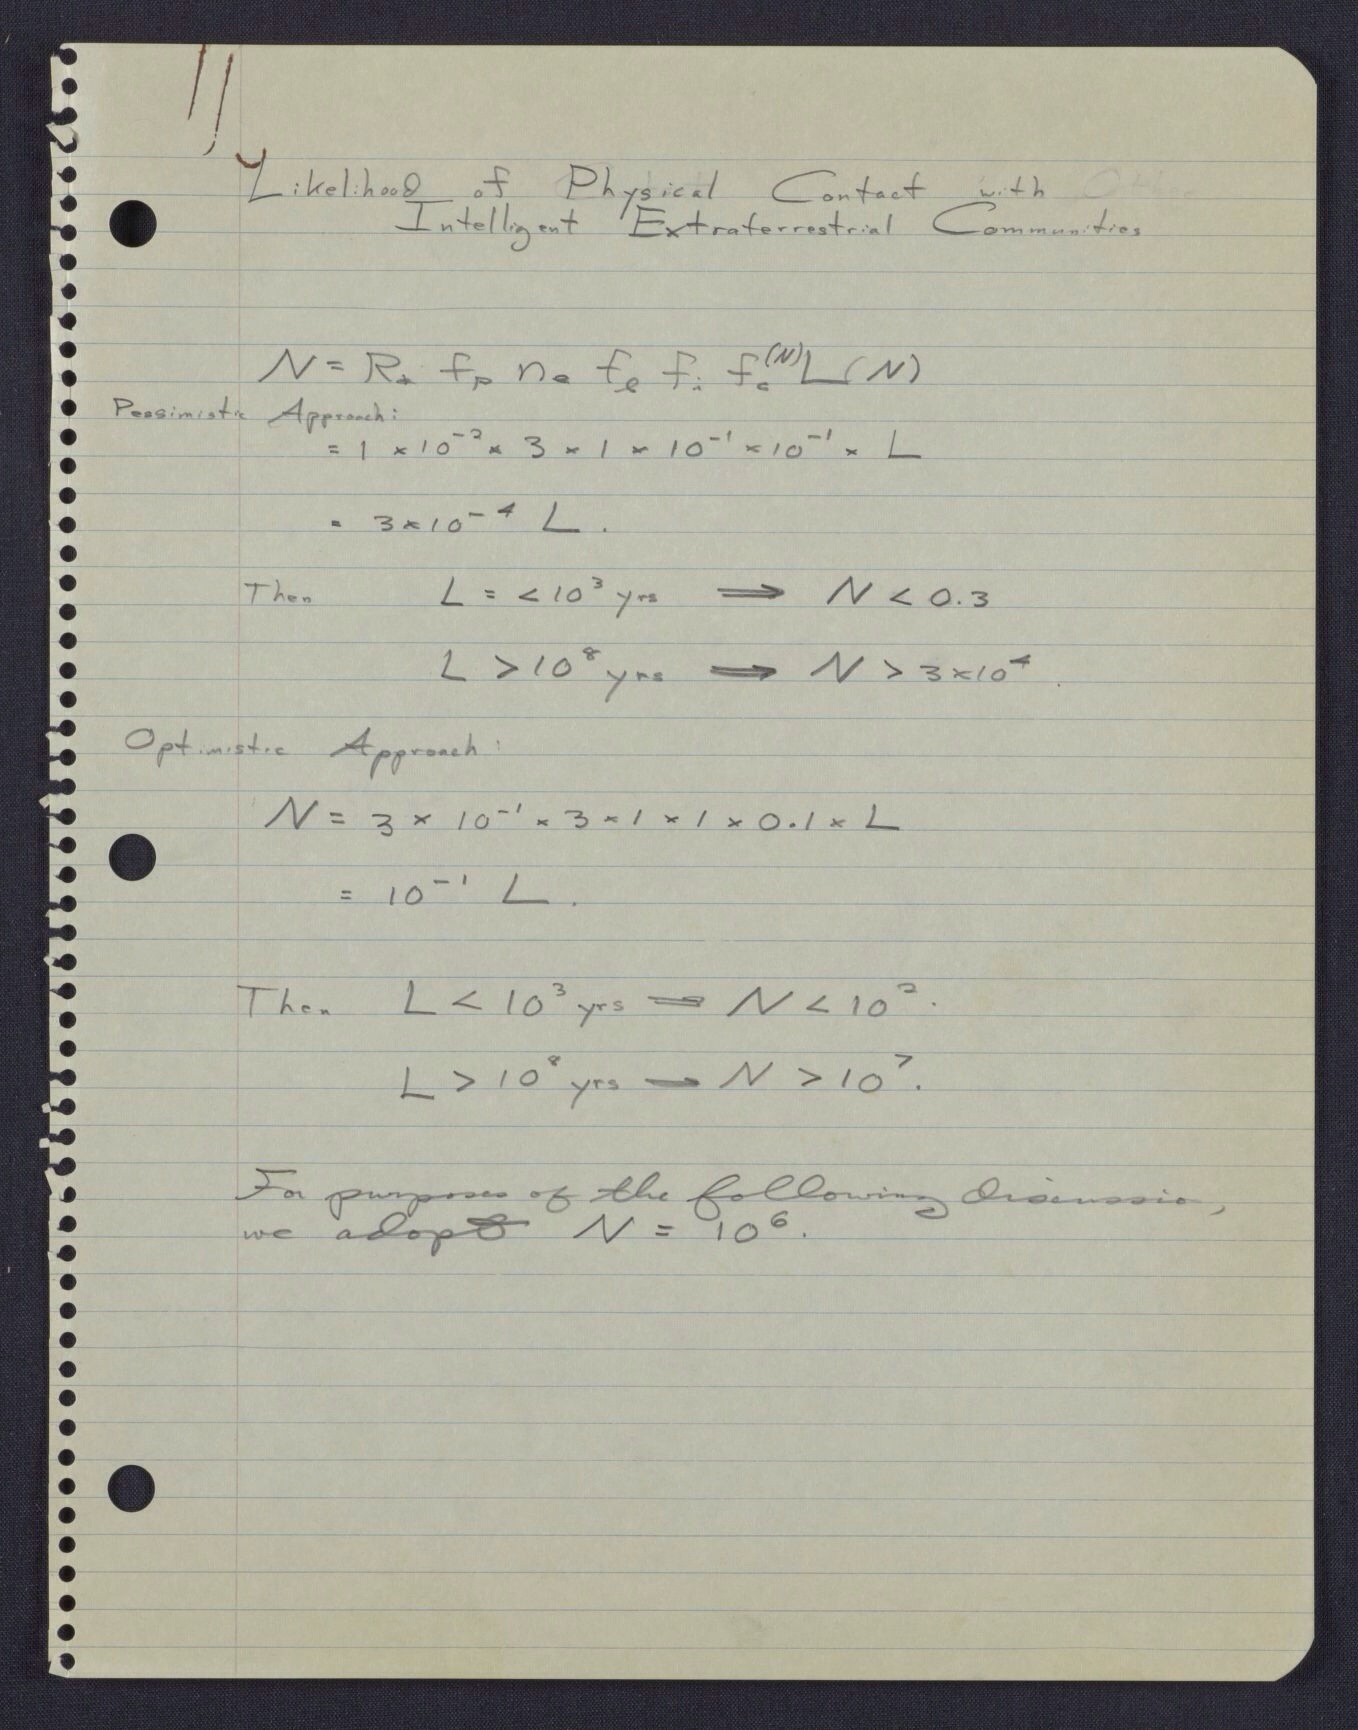 Likelihood of Physical Contact with
Intelligent Extraterrestrial Communities
N = R* fp ne fl fi fc(N) L(N)
Pessimistic Approach:
= 1 × 10⁻² × 3 × 1 × 10⁻¹ × 10⁻¹ × L
= 3×10⁻⁴ L.
Then L = < 10³ yrs ⟹ N < 0.3
L > 10⁸ yrs ⟹ N > 3×10⁴.
Optimistic Approach:
N = 3 × 10⁻¹ × 3 × 1 × 1 × 0.1 × L
= 10⁻¹ L.
Then L < 10³ yrs ⟹ N < 10².
L > 10⁸ yrs ⟹ N > 10⁷.
For purposes of the following discussion,
we adopt N = 10⁶.